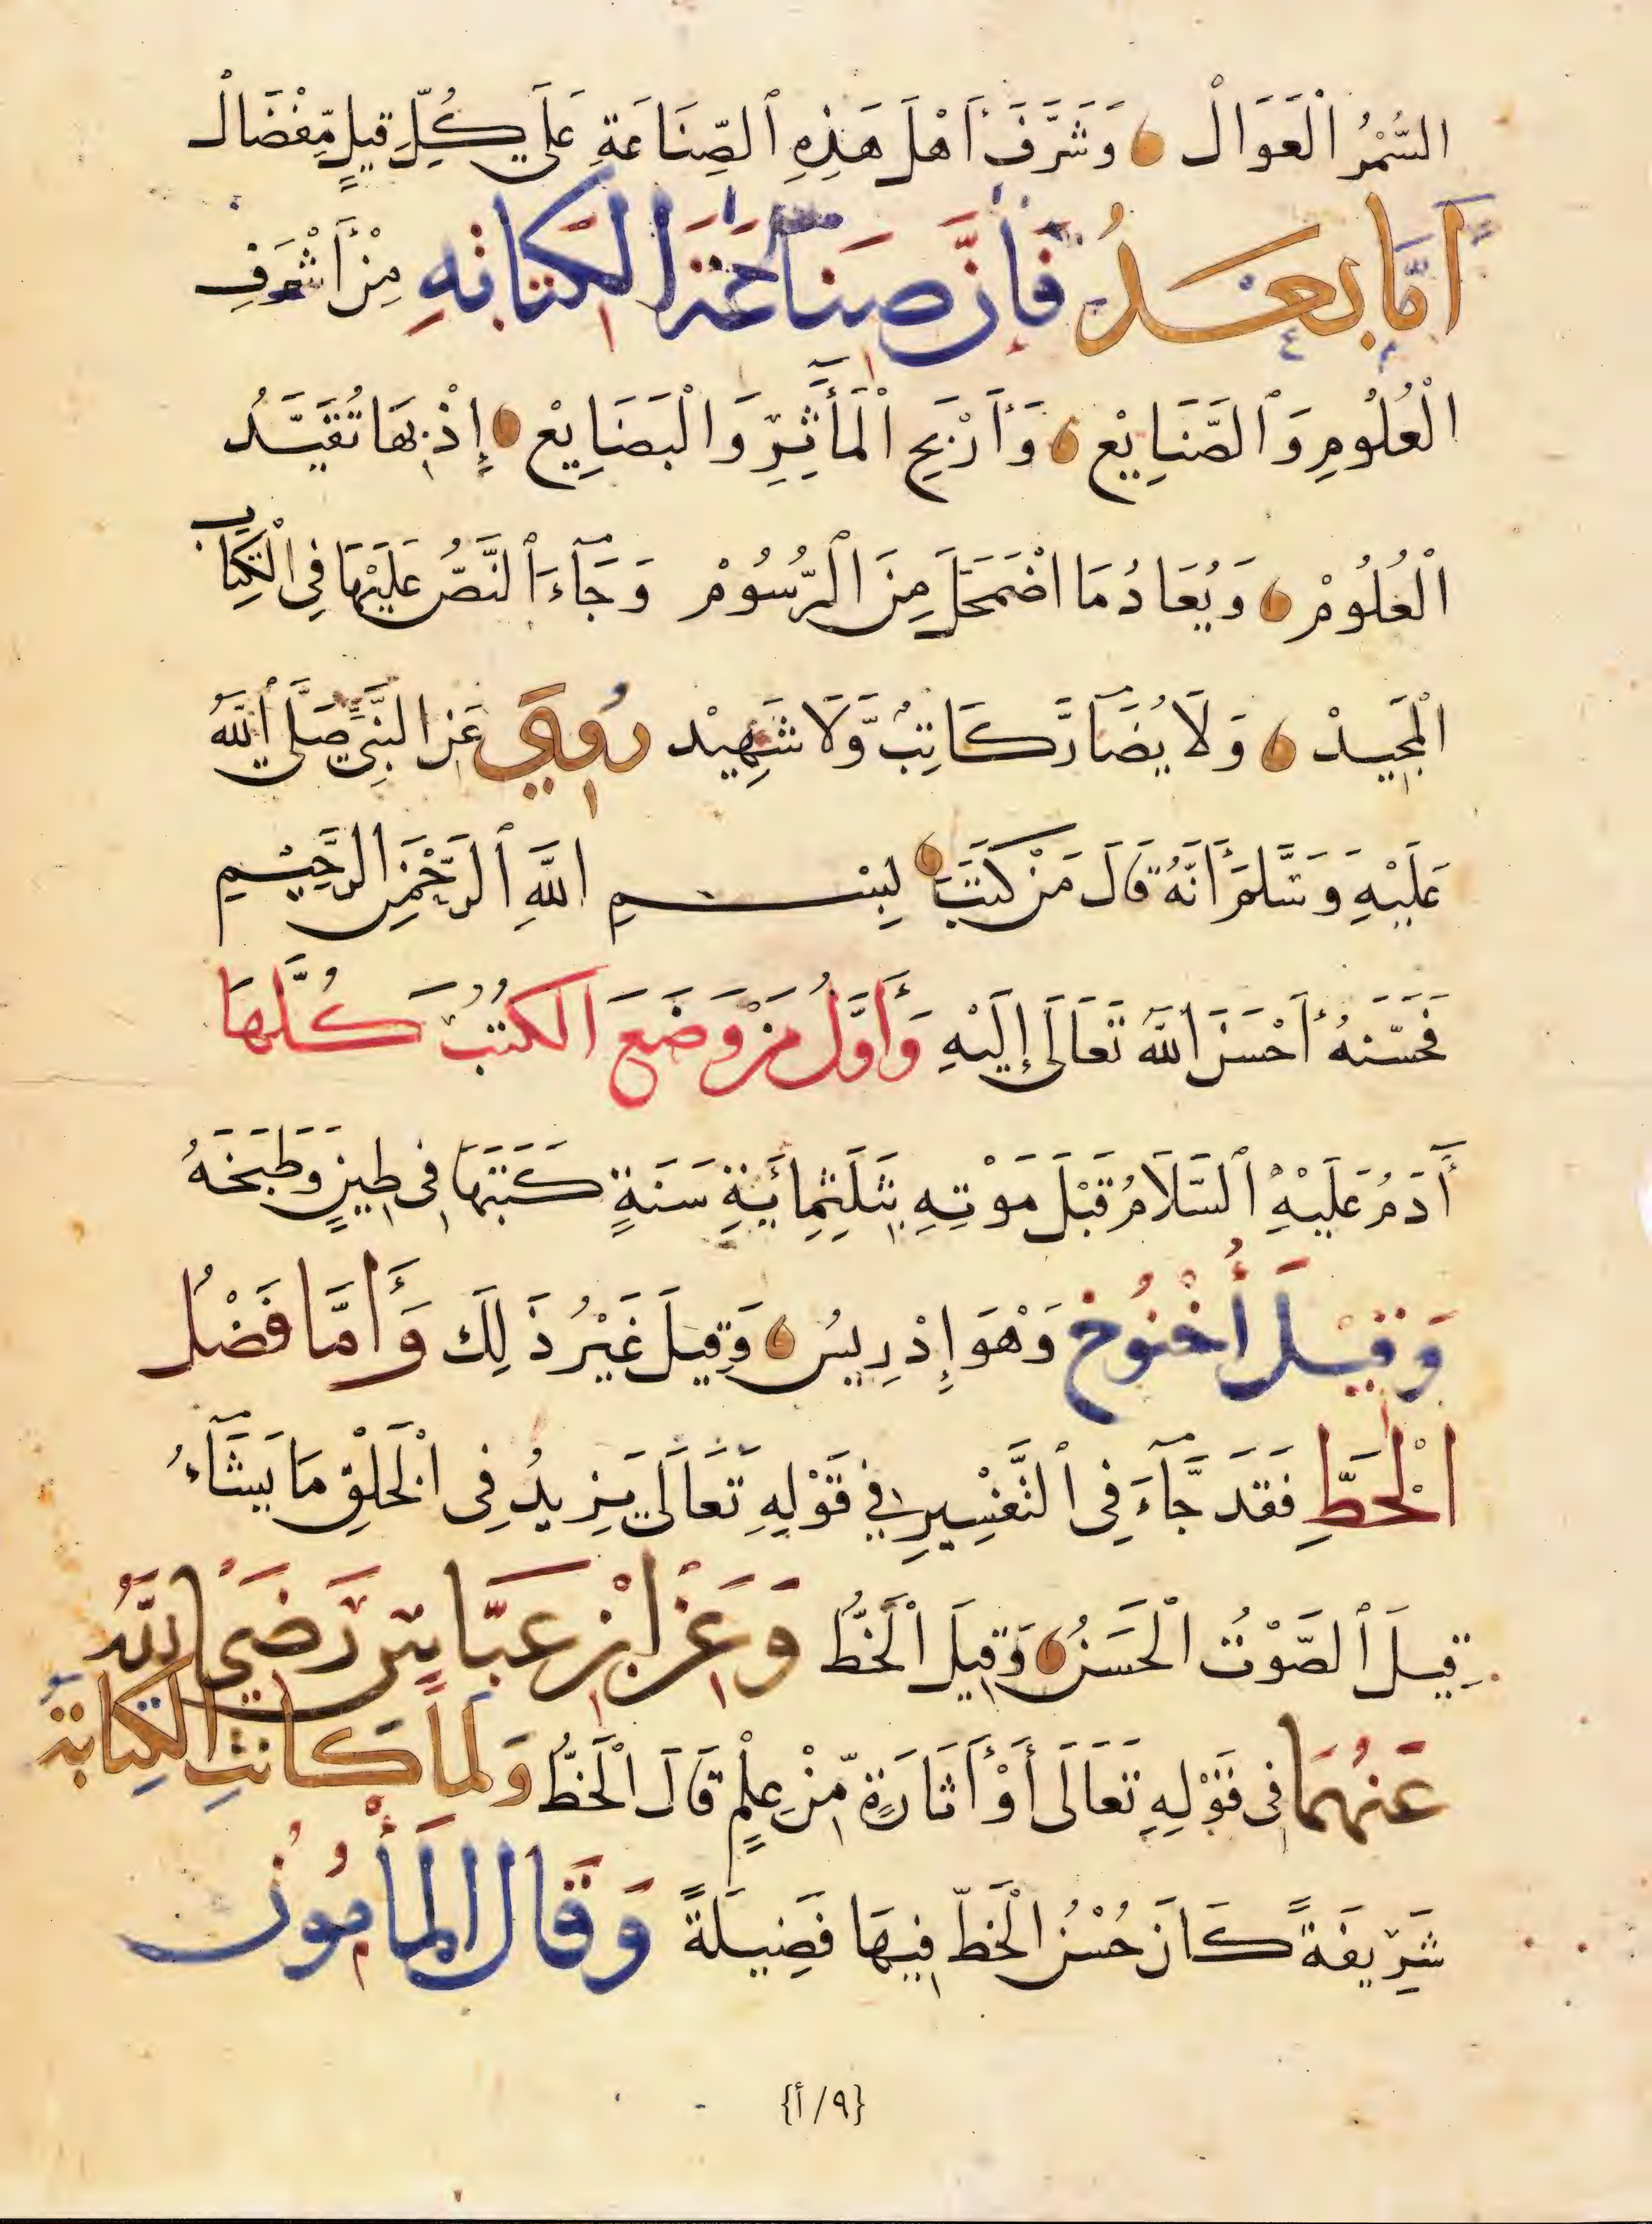 السُّمْرُ الْعَوَالْ وَشَرَّفَ أَهْلَ هَذِهِ ٱلصِّنَاعَةِ عَلَى كُلِّ قِيلٍ مِّفْضَالْ
أَمَّا بَعْدُ فَإِنَّ صِنَاعَةَ الْكِتَابَةِ مِنْ أَشْرَفِ
الْعُلُومِ وَٱلصَّنَايِعْ وَأَرْبَحِ الْمَأَثِرِ وَالْبَضَايِعْ إِذْ بِهَا تُقَيَّدُ
الْعُلُومْ وَيُعَادُ مَا اضْمَحَلَّ مِنَ الرُّسُومْ وَجَآءَ ٱلنَّصُّ عَلَيْهَا فِي الْكِتَابِ
الْمَجِيدْ وَلَا يُضَآرَّ كَاتِبٌ وَّلَا شَهِيْد رُوِيَ عَنِ النَّبِيِّ صَلَّى ٱللَّهُ
عَلَيْهِ وَسَلَّمَ أَنَّهُ قَالَ مَنْ كَتَبَ بِسْمِ اللَّهِ ٱلرَّحْمَنِ الرَّحِيْمِ
فَحَسَّنَهُ أَحْسَنَ اللَّهُ تَعَالَى إِلَيْهِ وَأَوَّلُ مَنْ وَضَعَ الْكُتُبَ كُلَّهَا
أَدَمُ عَلَيْهِ ٱلسَّلَامُ قَبْلَ مَوْتِهِ بِثَلَثِمِائَةِ سَنَةٍ كَتَبَهَا فِي طِينٍ وَطَبَخَهُ
وَقِيْلَ أُخْنُوخ وَهْوَ إِدْرِيسُ وَقِيلَ غَيْرُ ذَلِكَ وَأَمَّا فَضْلُ
الْخَطِّ فَقَدَ جَّآءَ فِي ٱلتَّفْسِيرِ فِي قَوْلِهِ تَعَالَى يَزِيدُ فِي الْخَلْقِ مَا يَشَآءُ
قِيلَ ٱلصَّوْتُ الْحَسَنُ وَقِيلَ الْخَطُّ وَعَنِ ابْنِ عَبَّاسٍ رَضِيَ اللَّهُ
عَنْهُمَا فِي قَوْلِهِ تَعَالَى أَوْ أَثَارَةٍ مِّنْ عِلْمٍ قَالَ الْخَطُّ وَلَمَّا كَانَتِ الْكِتَابَةُ
شَرِيفَةً كَانَ حُسْنُ الْخَطِّ فِيهَا فَضِيلَةً وَقَالَ الْمَأْمُونُ
{٩/أ}